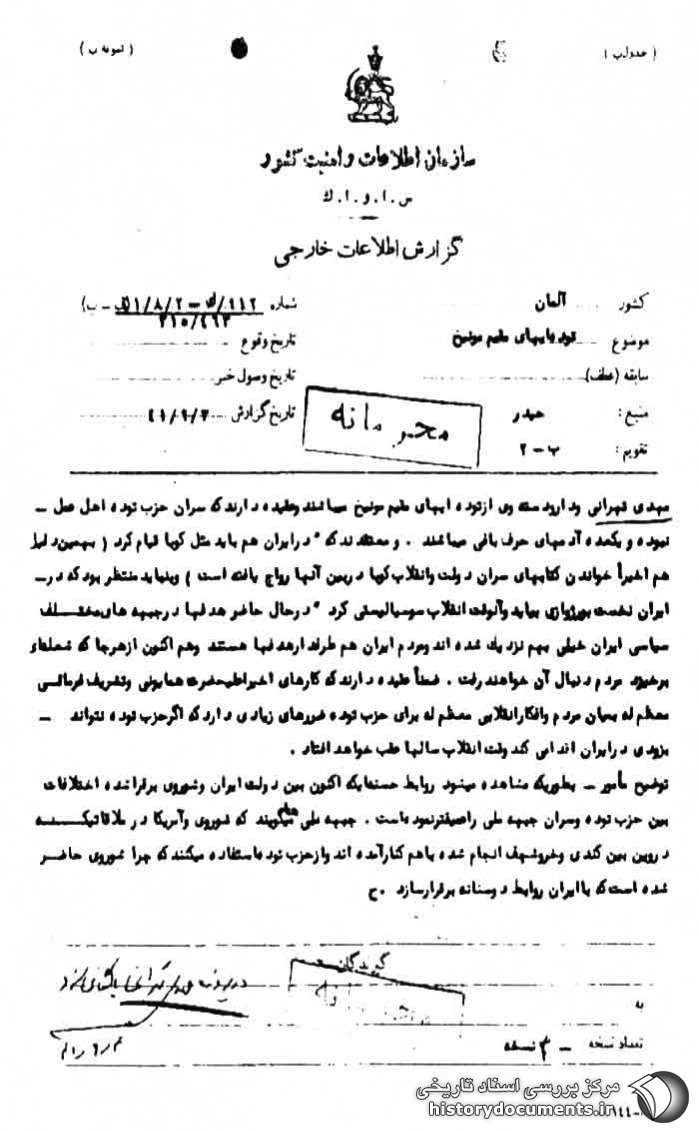 ( جدول ب )
( نمونه ب )
سازمان اطلاعات و امنیت کشور
س . ا . و . ا . ك
گزارش اطلاعات خارجی
کشور ..... آلمان
شماره
موضوع توده ایهای مقیم مونیخ
۳۱۵/۴۶۳
تاریخ وقوع
سابقه (عطف)
تاریخ وصول خبر
منبع : حیدر
محرمانه
تاریخ گزارش ۴۱/۹/۳
تقویم : ب - ۲
مهدی تهرانی و دارودسته وی از توده ایهای مقیم مونیخ میباشند وعقیده دارند که سران حزب توده اهل عمل –
نبوده و یکعده آدمهای حرف بافی میباشند . و معتقدند که " در ایران هم باید مثل کوبا قیام کرد ( بهمین دلیل
هم اخیراً خواندن کتابهای سران دولت وانقلاب کوبا در بین آنها رواج یافته است ) ونباید منتظر بود که در –
ایران نخست بورژوازی بیاید وآنوقت انقلاب سوسیالیستی کرد " در حال حاضر هدفها در جبهه های مختلف
سیاسی ایران خیلی بهم نزدیك شده اند ومردم ایران هم طرفدار هدفها هستند وهم اکنون از هرجا که شعله ای
برخیزد مردم دنبال آن خواهند رفت . ضمناً عقیده دارند که کارهای اخیر اعلیحضرت همایونی وتشریف فرمائی
معظم له بمیان مردم وافکار انقلابی معظم له برای حزب توده ضررهای زیادی دارد که اگر حزب توده نتواند –
بزودی در ایران اقدامی کند وقت انقلاب سالها عقب خواهد افتاد .
توضیح مأمور – بطوریکه مشاهده میشود روابط حسنه ایکه اکنون بین دولت ایران وشوروی برقرار شده اختلافات
بین حزب توده وسران جبهه ملی را عمیقتر نموده است . جبهه ملی ها میگویند که شوروی وآمریکا در ملاقاتیکه
در وین بین کندی وخروشچف انجام شده باهم کنار آمده اند واز حزب توده استفاده میکنند که چرا شوروی حاضر
شده است که با ایران روابط دوستانه برقرار سازد . ح
گیرندگان
به
تعداد نسخه – ۳ نسخه
مرکز بررسی اسناد تاریخی
historydocuments.ir
۱۴۴